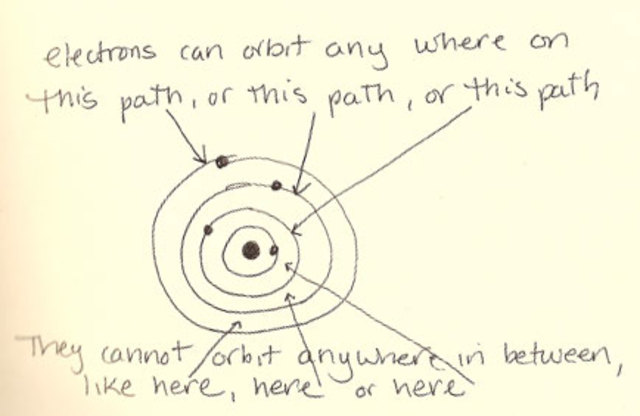 electrons can orbit any where on
this path, or this path, or this path
They cannot orbit anywhere in between,
like here, here or here